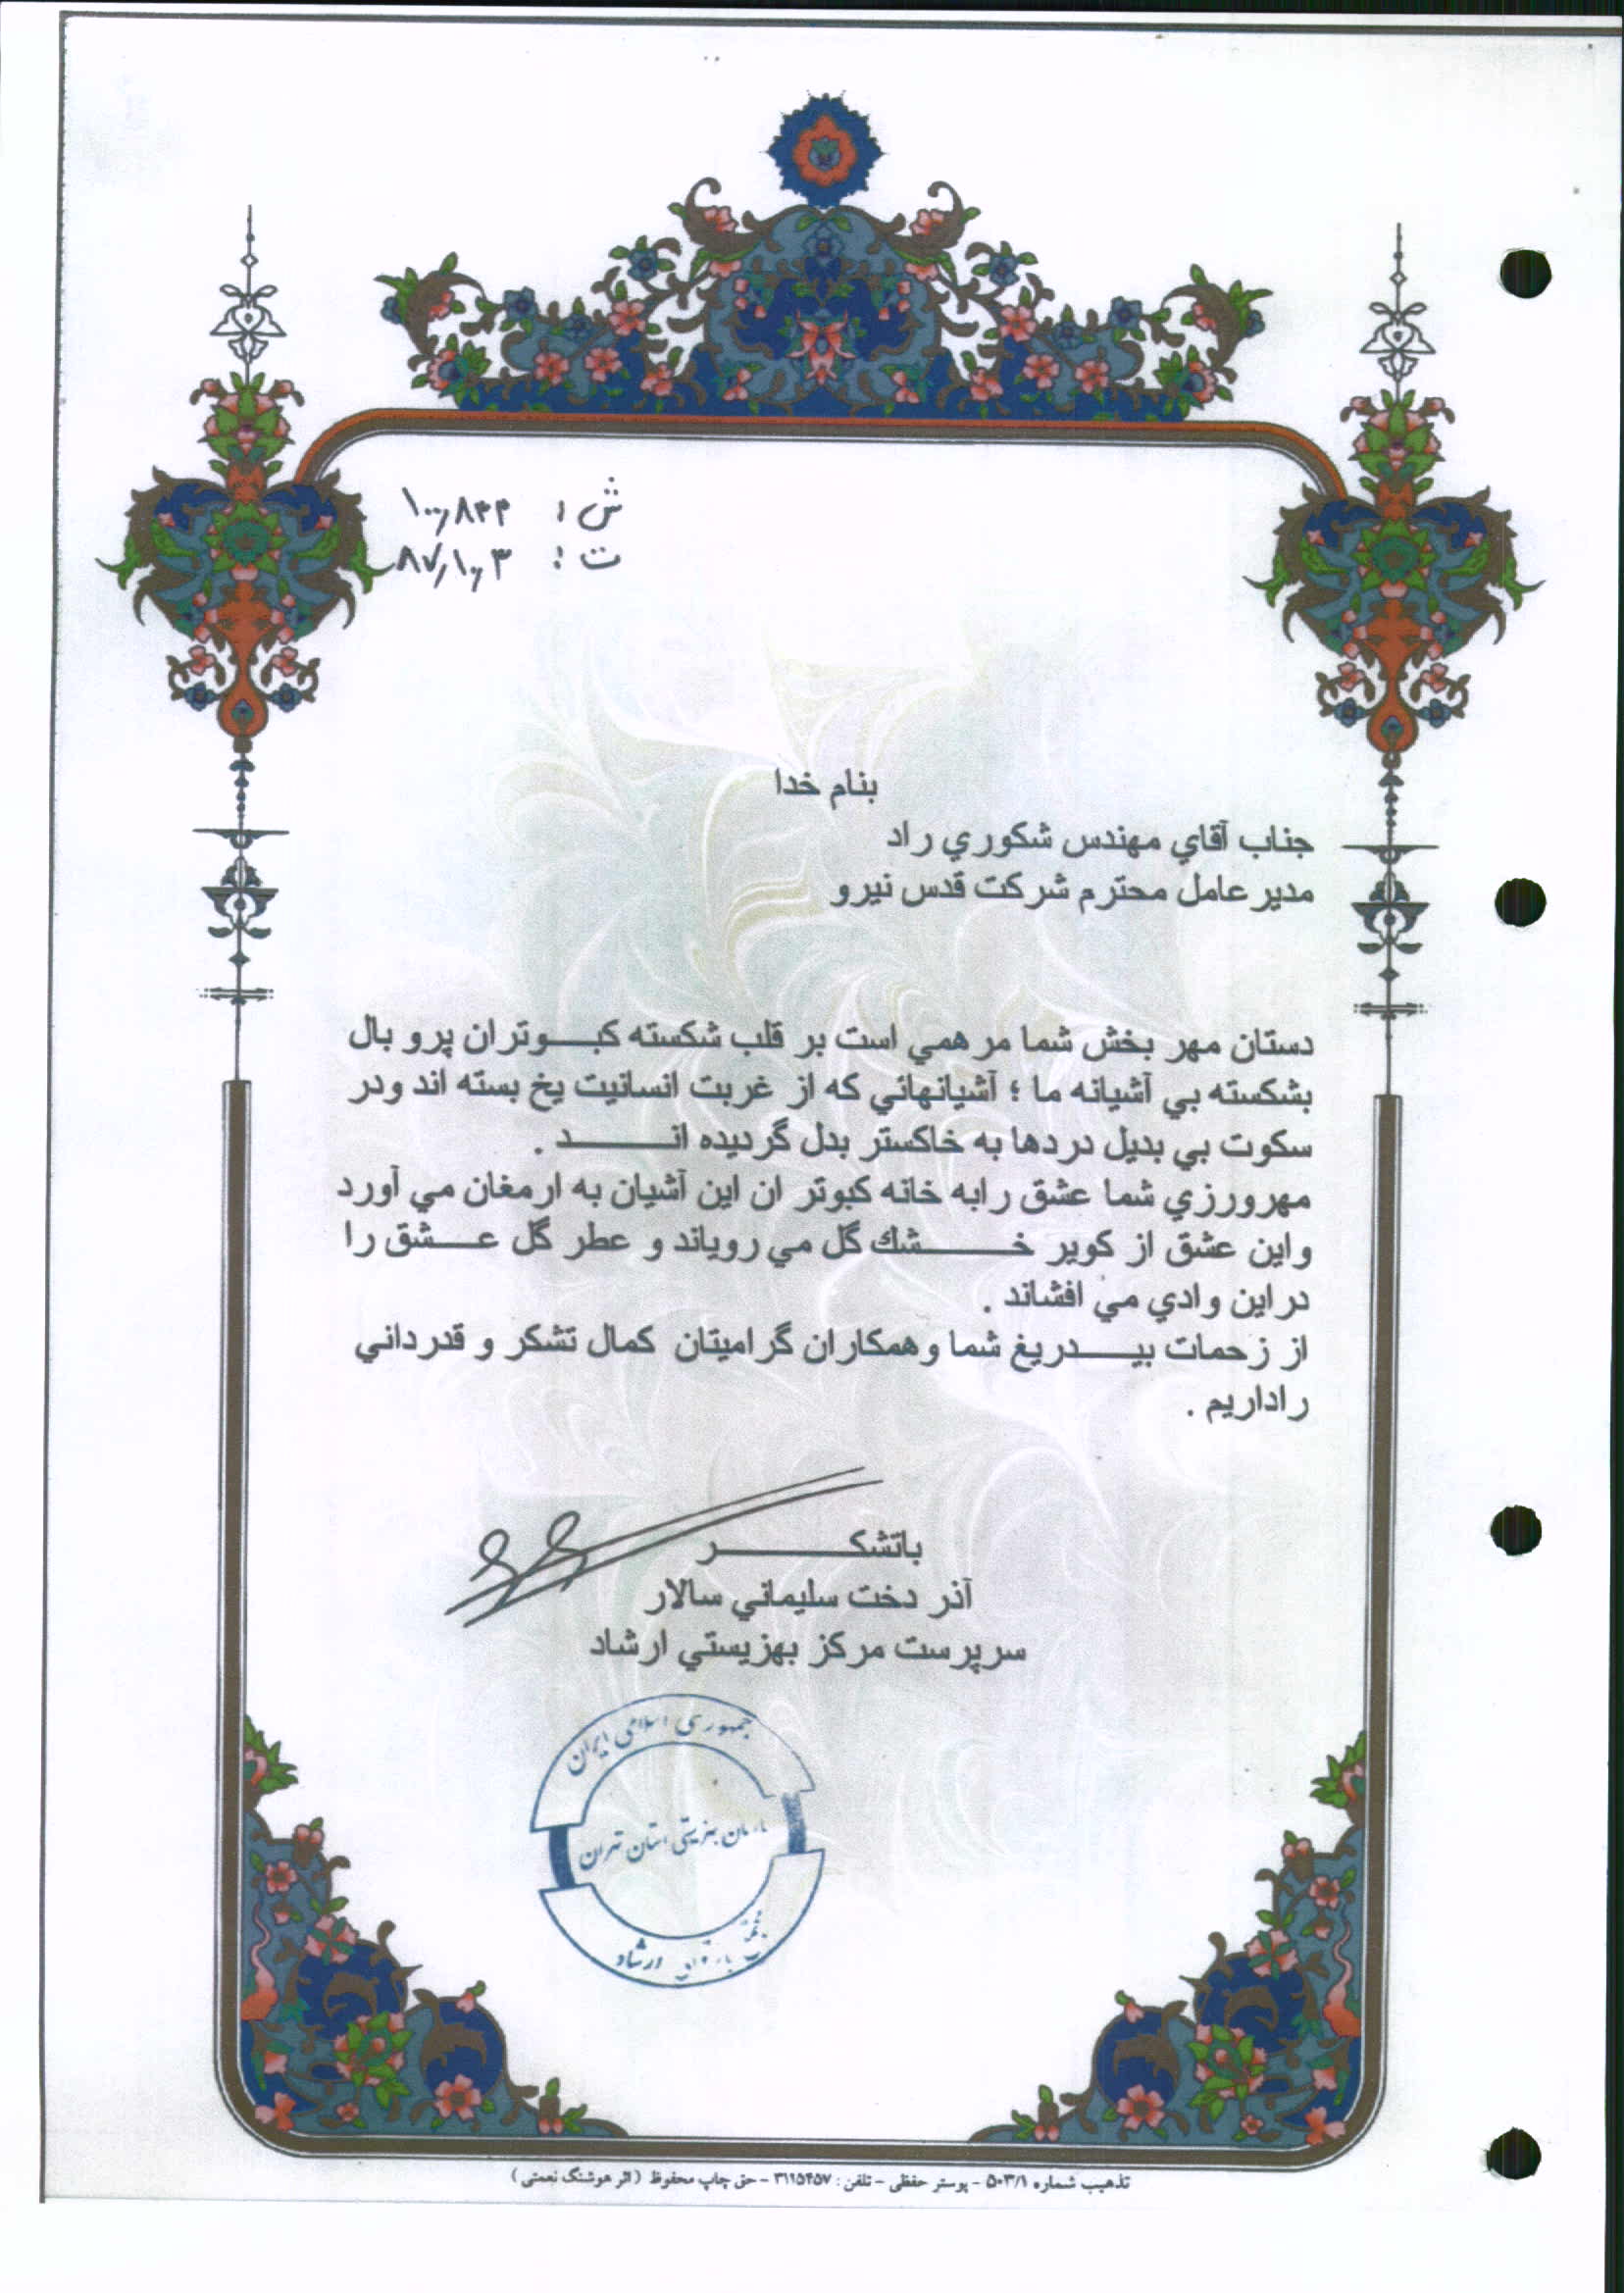 ش: ۱۰۰٫۸۴۴
ت: ۸۷٫۱۰٫۳
بنام خدا
جناب آقاي مهندس شكوري راد
مدير عامل محترم شركت قدس نيرو
دستان مهر بخش شما مرهمي است بر قلب شكسته كبـــوتران پرو بال
بشكسته بي آشيانه ما ؛ آشيانهائي كه از غربت انسانيت يخ بسته اند ودر
سكوت بي بديل دردها به خاكستر بدل گرديده انـــــد .
مهرورزي شما عشق رابه خانه كبوتر ان اين آشيان به ارمغان مي آورد
واين عشق از كوير خـــــشك گل مي روياند و عطر گل عـــشق را
دراين وادي مي افشاند .
از زحمات بيـــدريغ شما وهمكاران گراميتان كمال تشكر و قدرداني
راداريم .
باتشكـــــــر
آذر دخت سليماني سالار
سرپرست مركز بهزيستي ارشاد
جمهوری اسلامی ایران
سازمان بهزیستی استان تهران
ارشاد
تذهیب شماره ۵۰۳/۱ - پوستر حفظی - تلفن : ۳۱۱۵۴۵۷ - حق چاپ محفوظ ( اثر هوشنگ نعمتی )